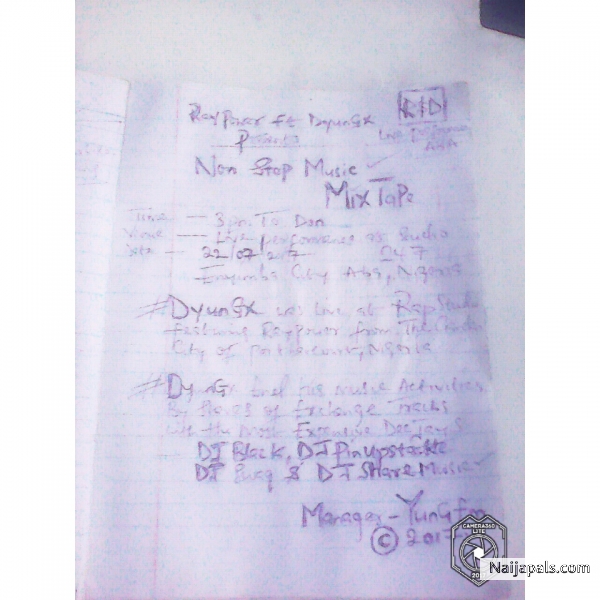 RayPower ft DyunGx
R&D
Presents
Live Performance
Non Stop Music
MixTape
Time — 3pm To Dan
Venue — Live performance at Studio
Date — 22/07/2017 247
City Aba, Nigeria
#DyunGx was Live at RapStudio
featuring RayPower from The Garden
City of Portharcourt, Nigeria
#DyunGx his music Activities
By of Exchange Tracks
with the most Extensive Deejays
DJ Black, DJ Pinupstarke
DJ Swag & DJ ShareMusic
Manager - YunGfx
© 2017
CAMERA360
LITE
20
Naijapals.com